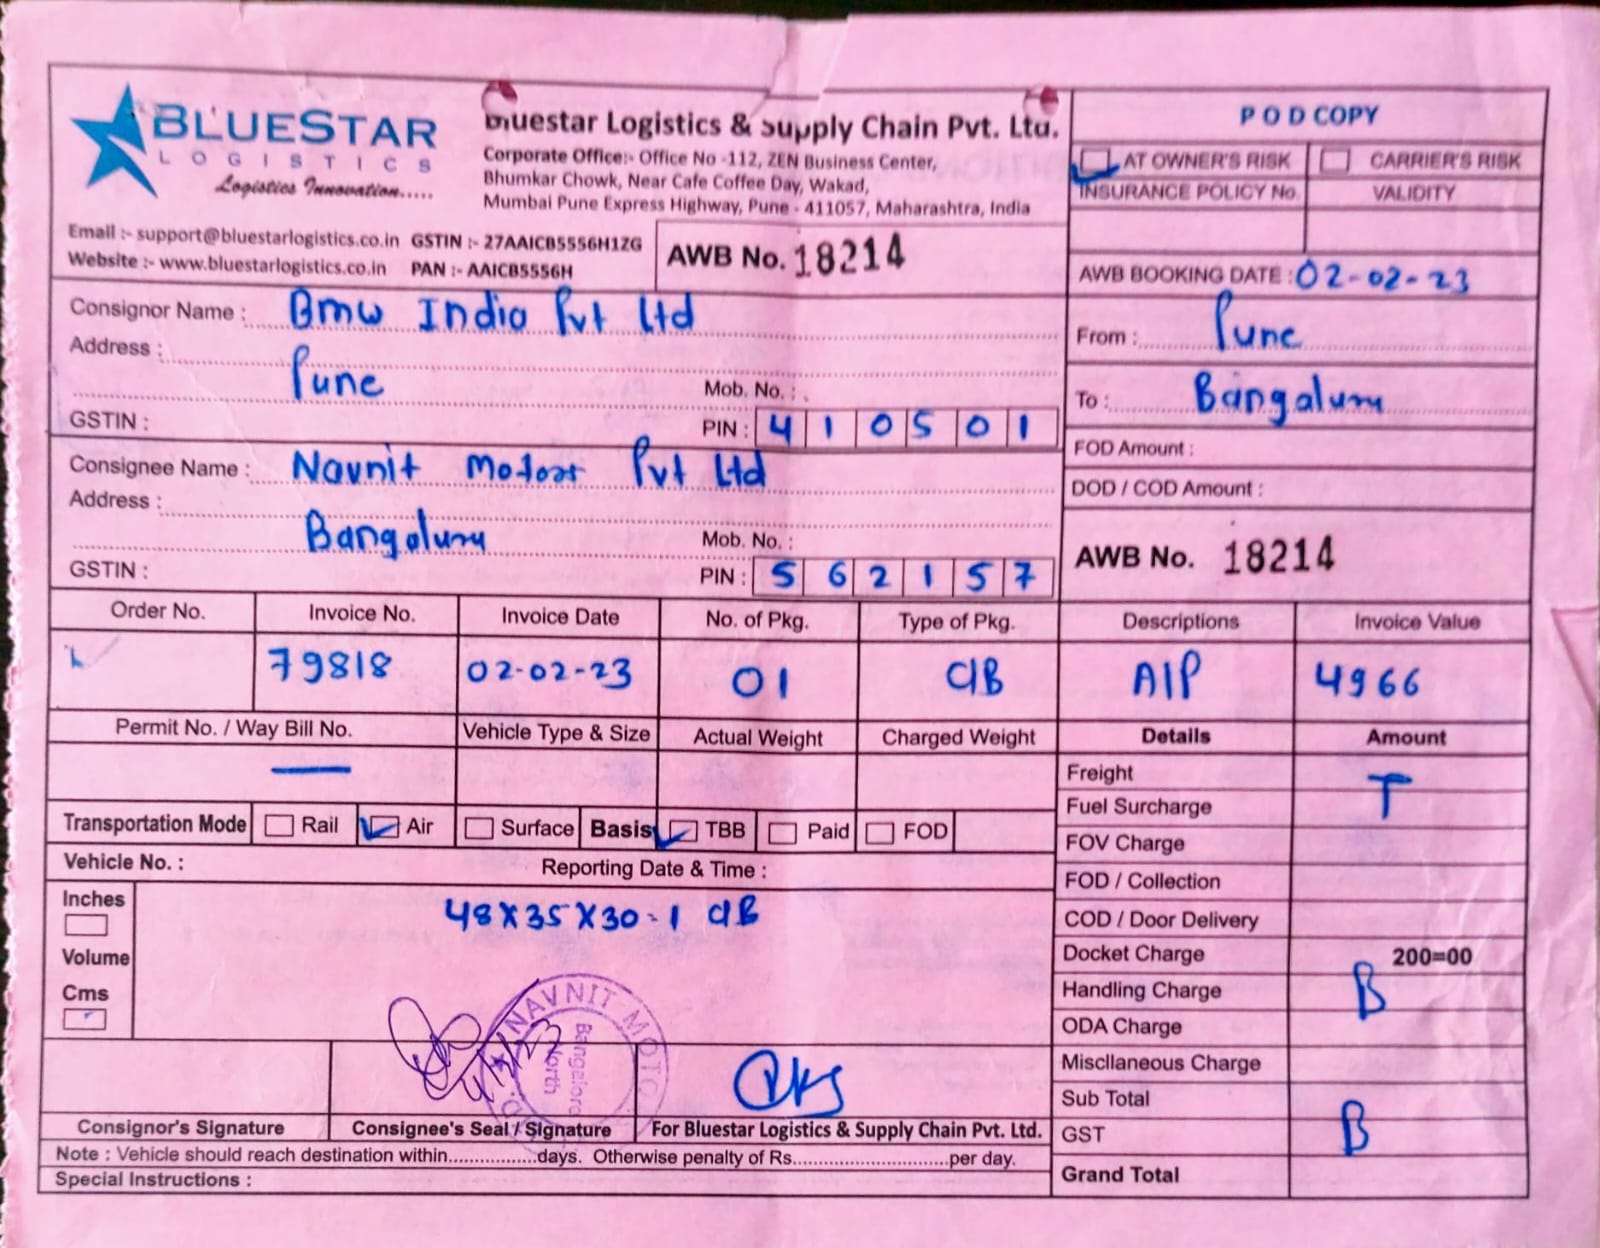 BLUESTAR
LOGISTICS
Logistics Innovation.....
Bluestar Logistics & Supply Chain Pvt. Ltd.
Corporate Office:- Office No -112, ZEN Business Center,
Bhumkar Chowk, Near Cafe Coffee Day, Wakad,
Mumbai Pune Express Highway, Pune - 411057, Maharashtra, India
Email :- support@bluestarlogistics.co.in GSTIN :- 27AAICB5556H1ZG
Website :- www.bluestarlogistics.co.in PAN :- AAICB5556H
AWB No. 18214
POD COPY
AT OWNER'S RISK CARRIER'S RISK
INSURANCE POLICY No. VALIDITY
AWB BOOKING DATE : 02-02-23
Consignor Name : Bmw India Pvt Ltd
Address :
Pune Mob. No. :
GSTIN : PIN : 410501
From : Pune
To : Bangaluru
FOD Amount :
DOD / COD Amount :
Consignee Name : Navnit Motors Pvt Ltd
Address :
Bangaluru Mob. No. :
GSTIN : PIN : 562157
AWB No. 18214
Order No. Invoice No. Invoice Date No. of Pkg. Type of Pkg. Descriptions Invoice Value
79818 02-02-23 01 CIB AIP 4966
Permit No. / Way Bill No. Vehicle Type & Size Actual Weight Charged Weight Details Amount
—
Transportation Mode Rail Air Surface Basis TBB Paid FOD
Vehicle No. : Reporting Date & Time :
Inches
Volume
Cms
48X35X30-1 CIB
Freight
T
Fuel Surcharge
FOV Charge
FOD / Collection
COD / Door Delivery
Docket Charge 200=00
Handling Charge B
ODA Charge
Miscllaneous Charge
Sub Total
GST B
Grand Total
NAVNIT MOTO
Bangalore
North
Consignor's Signature Consignee's Seal / Signature For Bluestar Logistics & Supply Chain Pvt. Ltd.
Note : Vehicle should reach destination within.................days. Otherwise penalty of Rs.............................per day.
Special Instructions :